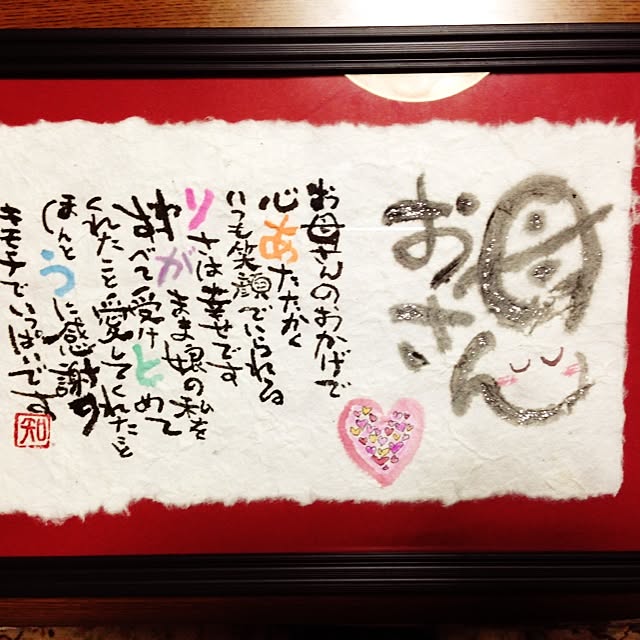 お母さん
お母さんのおかげで
心あたたかく
いつも笑顔でいられる
りさは幸せです
わがまま娘の私を
すべて受けとめて
くれたこと愛してくれたこと
ほんとうに感謝の
キモチでいっぱいです
知